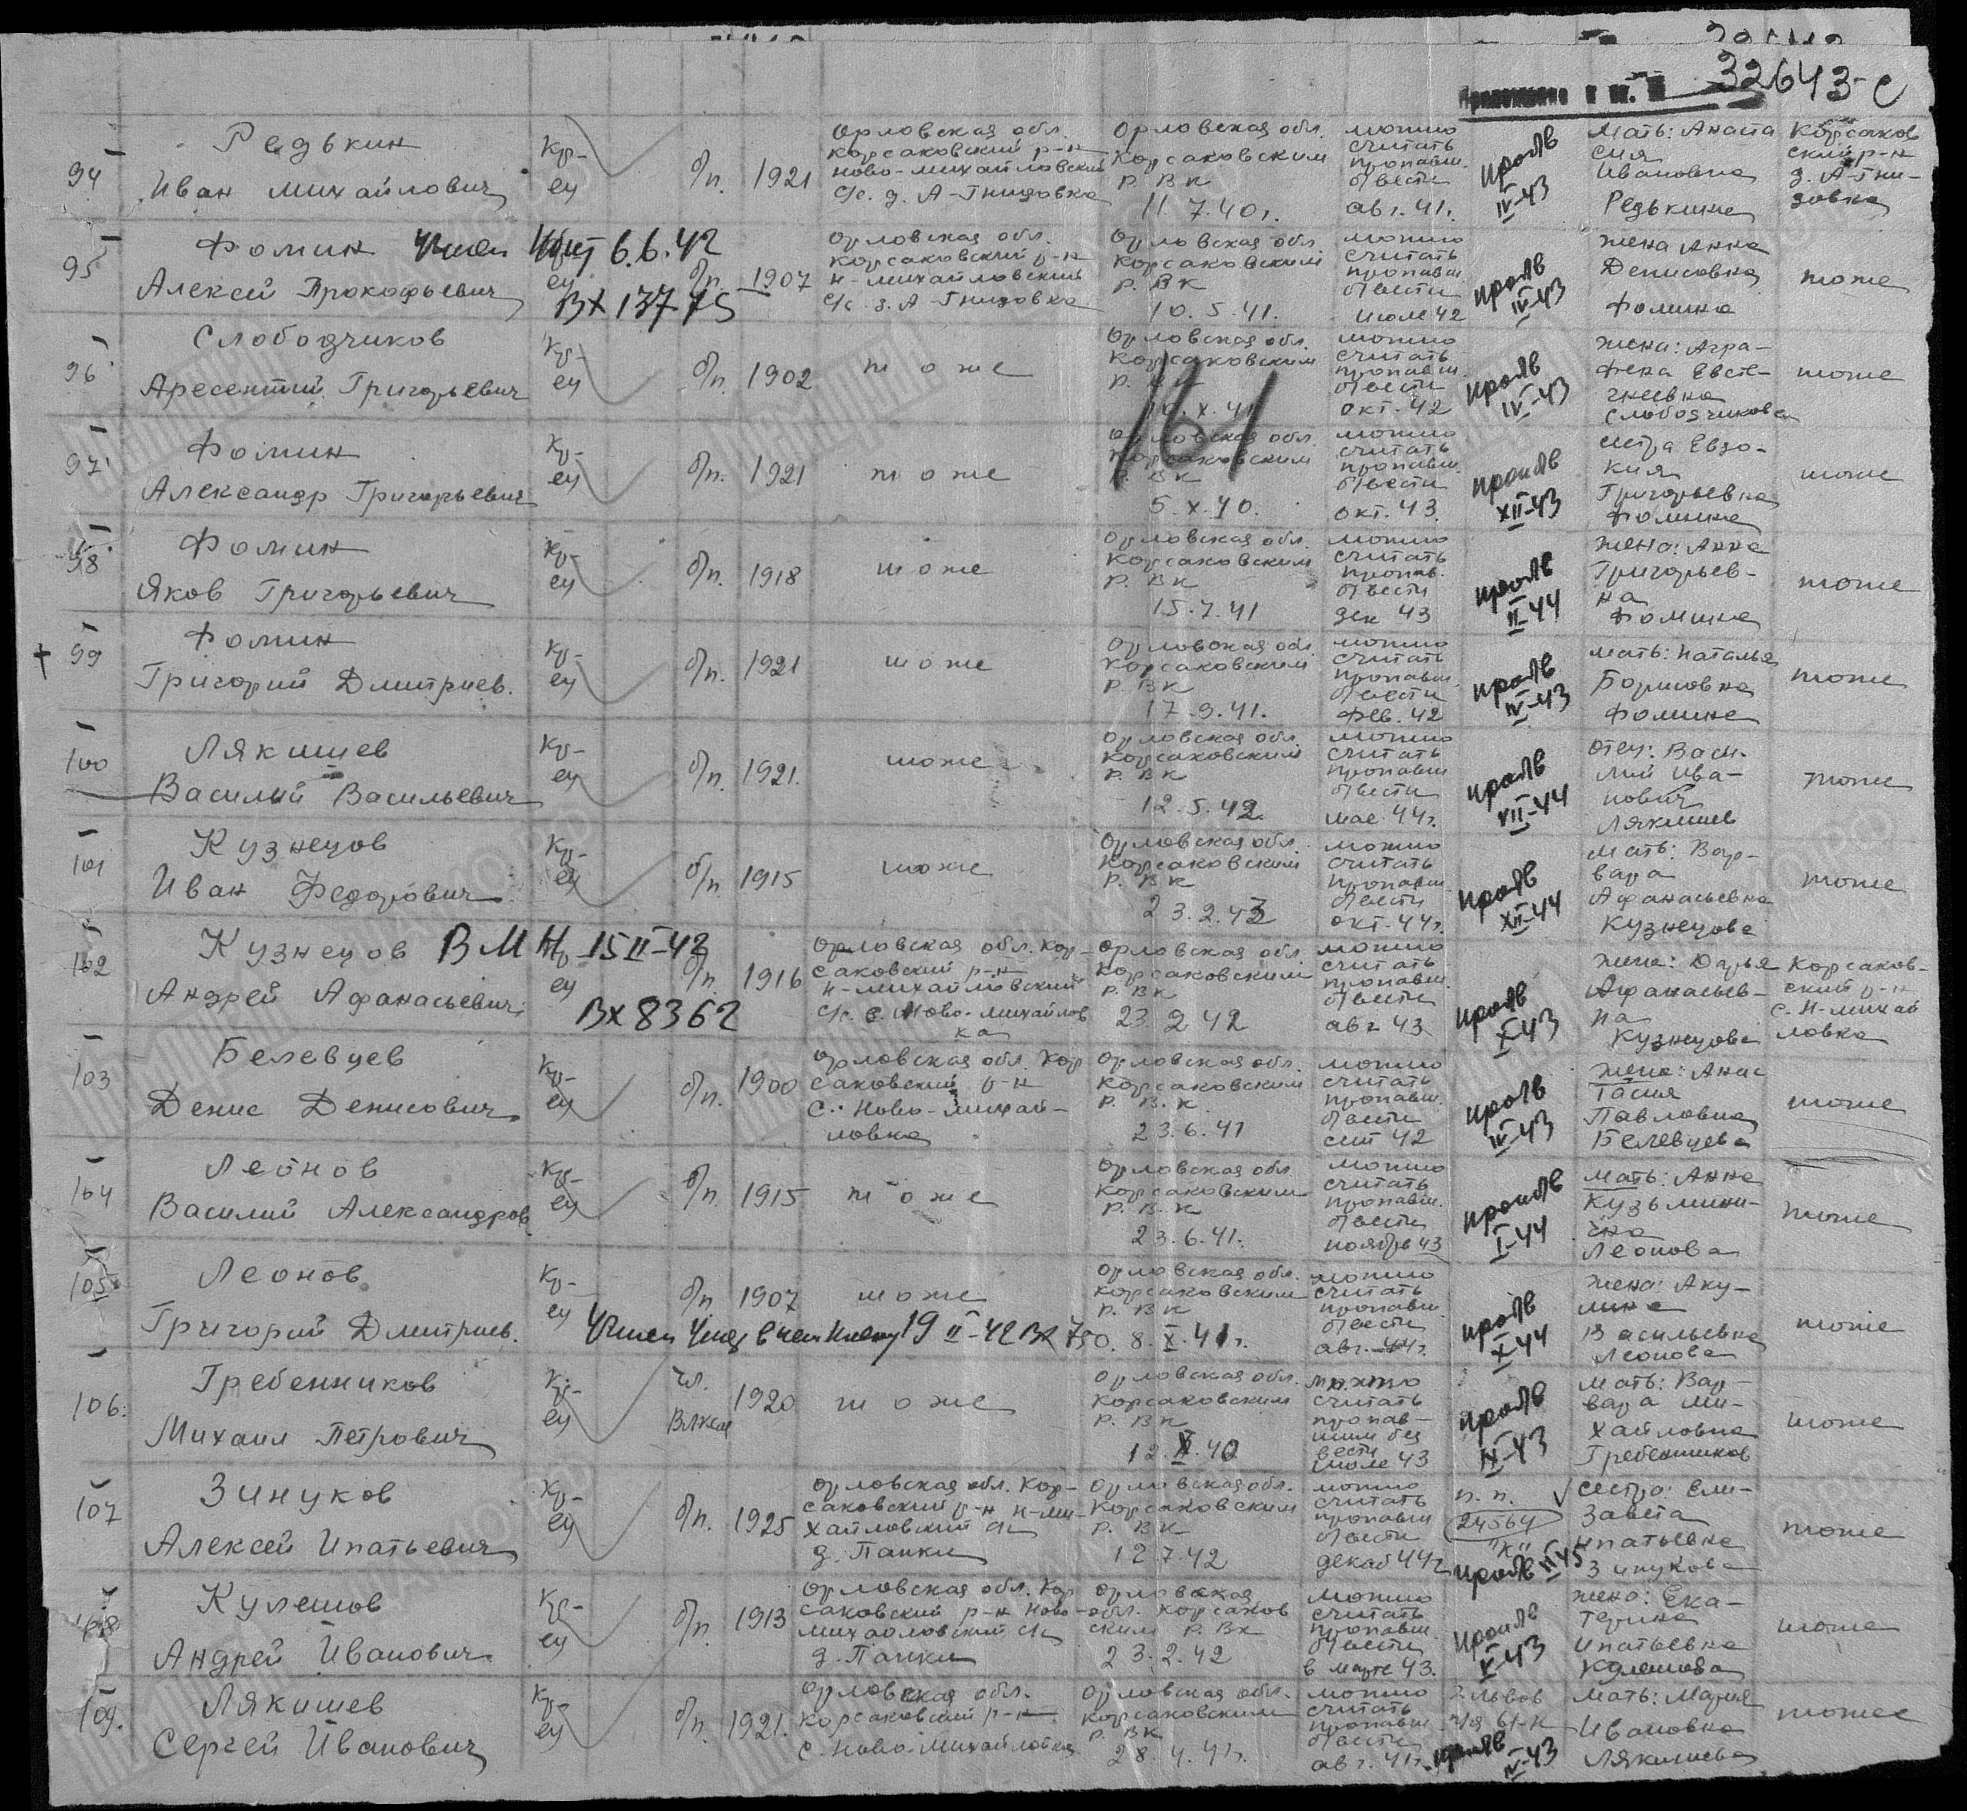 32643-с
94
Редькин
Иван Михайлович
кр-ец
б/п. 1921
Орловская обл.
Корсаковский р-н
Ново-Михайловский
с/с. д. А-Гнидовка
Орловская обл.
Корсаковским
Р.В.К
11.7.40г.
можно
считать
пропавш.
б/вести
авг. 41г.
IV-43
Мать: Анаста
сия
Ивановна
Редькина
Корсаков
ский р-н
д. А-Гни-
довка
95
Фомин
убит 6.6.42
Алексей Прокофьевич
ец
б/п. 1907
Вх 13775
Орловская обл.
Корсаковский р-н
Н-Михайловский
с/с. д. А-Гнидовка
Орловская обл.
Корсаковским
Р.В.К
10.5.41.
можно
считать
пропавш
б/вести
июле 42
IV-43
жена Анна
Денисовна
Фомина
тоже
96
Слободчиков
Арсентий Григорьевич
кр-ец
б/п. 1902
тоже
Орловская обл.
Корсаковским
161
можно
считать
пропавш.
б/вести
окт. 42
IV-43
жена: Агра-
фена Евсте-
гнеевна
Слободчикова
тоже
97
Фомин
Александр Григорьевич
кр-ец
б/п. 1921
тоже
Орловская обл.
Корсаковским
Р.В.К
5.X.40.
можно
считать
пропавш.
б/вести
окт. 43.
XII-43
сестра Евдо-
кия
Григорьевна
Фомина
тоже
98
Фомин
Яков Григорьевич
кр-ец
б/п. 1918
тоже
Орловская обл.
Корсаковским
Р.В.К
15.7.41
можно
считать
пропав.
б/вести
дек 43
II-44
жена: Анна
Григорьев-
на
Фомина
тоже
99
Фомин
Григорий Дмитриев.
кр-ец
б/п. 1921
тоже
Орловская обл
Корсаковским
Р.В.К
17.9.41.
можно
считать
пропавш.
б/вести
фев. 42
IV-43
мать: Наталья
Борисовна
Фомина
тоже
100
Лякишев
Василий Васильевич
кр-ец
б/п. 1921.
тоже
Орловская обл.
Корсаковским
Р.В.К
12.5.42.
можно
считать
пропавш
б/вести
мае 44г.
VII-44
отец: Васи-
лий Ива-
нович
Лякишев
тоже
101
Кузнецов
Иван Федорович
кр-ец
б/п 1915
тоже
Орловская обл.
Корсаковским
Р.В.К
можно
считать
пропавш.
б/вести
окт-44г.
XII-44
мать: Вар-
вара
Афанасьевна
Кузнецова
тоже
102
Кузнецов
15 II-42
Андрей Афанасьевич
ец
б/п. 1916
Вх 8362
Орловская обл. Кор-
саковский р-н
Н-Михайловский
с/с. с. Ново-Михайлов
ка
Орловская обл.
Корсаковским
Р.В.К
23.2.42
можно
считать
пропавш.
б/вести
авг 43
X-43
жена: Дарья
Афанасьев-
на
Кузнецова
Корсаков-
ский р-н
с. Н-Михай
ловка
103
Белевцев
Денис Денисович
кр-ец
б/п. 1900
Орловская обл. Кор
саковский р-н
с. Ново-Михай-
ловка
Орловская обл.
Корсаковским
Р.В.К
23.6.41
можно
считать
пропавш.
б/вести
сент 42
IV-43
жена: Анас
тасия
Павловна
Белевцева
тоже
104
Леонов
Василий Александров
кр-ец
б/п. 1915
тоже
Орловская обл
Корсаковским
Р.В.К
23.6.41.
можно
считать
пропавш.
б/вести
ноябре 43
I-44
мать: Анна
Кузьмини-
чна
Леонова
тоже
105
Леонов
Григорий Дмитриев.
кр-ец
б/п 1907
тоже
19 II-42 Вх 750.
Орловская обл.
Корсаковским
Р.В.К
8.X.41г.
можно
считать
пропавш.
б/вести
X-44
жена: Аку-
лина
Васильевна
Леонова
тоже
106.
Гребенников
Михаил Петрович
кр-ец
чл.
ВЛКСМ
1920
тоже
Орловская обл.
Корсаковским
Р.В.К
можно
считать
пропав-
шим без
вести
июле 43
IX-43
мать: Вар-
вара Ми-
хайловна
Гребенников
тоже
107
Зинуков
Алексей Ипатьевич
кр-ец
б/п. 1925
Орловская обл. Кор-
саковский р-н Н-Ми-
хайловский с/с
д. Паньки
Орловская обл.
Корсаковским
Р.В.К
12.7.42
можно
считать
пропавш
б/вести
декаб 44г
п.п.
24564
"К"
сестра: Ели-
завета
Ипатьевна
Зинукова
тоже
108
Кулешов
Андрей Иванович
кр-ец
б/п. 1913
Орловская обл. Кор
саковский р-н Ново-
Михайловский с/с
д. Паньки
Орловская
обл. Корсаков
ским Р.В.К
23.2.42
можно
считать
пропавш.
б/вести
в марте 43.
V-43
жена: Ека-
терина
Ипатьевна
Кулешова
тоже
109.
Лякишев
Сергей Иванович
кр-ец
б/п. 1921.
Орловская обл.
Корсаковский р-н
с. Ново-Михайловка
Орловская обл.
Корсаковским
Р.В.К
28.4.41г.
можно
считать
пропавш.
б/вести
авг. 41г.
г. Львов
IV-43
мать: Мария
Ивановна
Лякишева
тоже